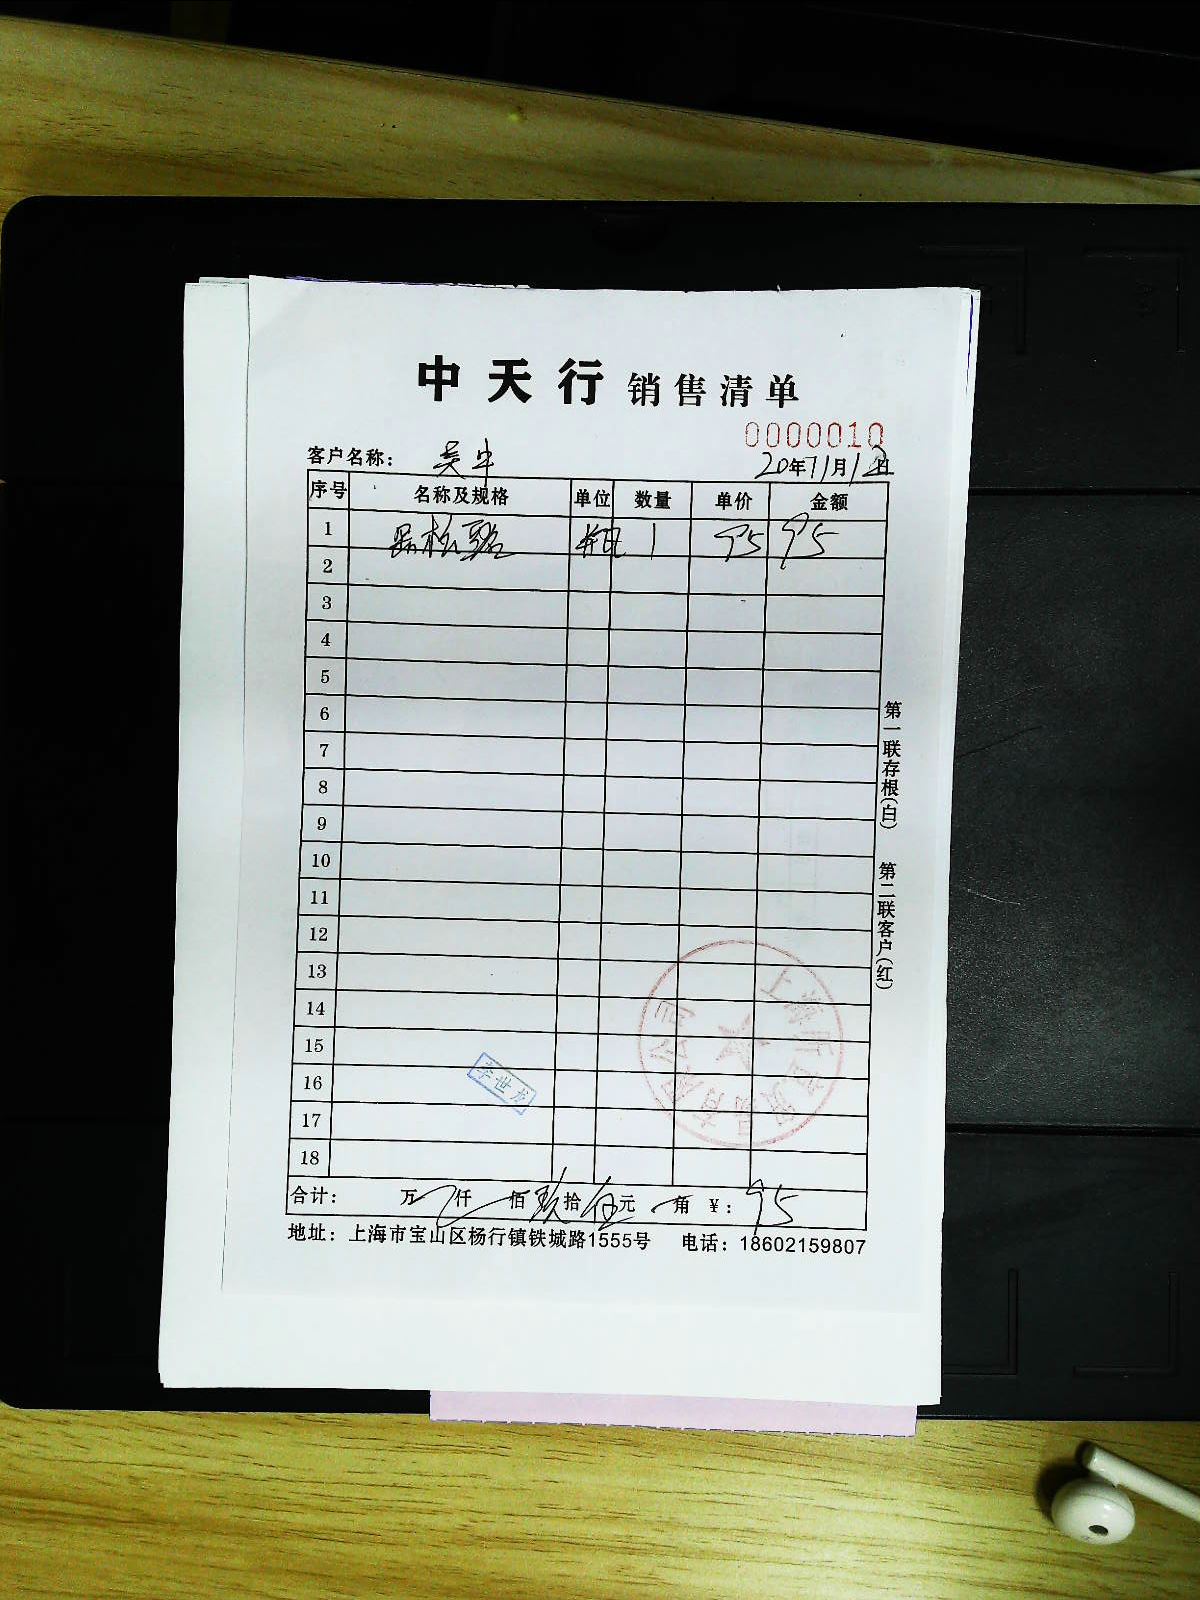 中天行 销售清单
0000010
客户名称: 吴牛
20年11月12日
序号 名称及规格 单位 数量 单价 金额
1 瓶 1 95 95
2
3
4
5
6
7
8
9
10
11
12
13
14
15
16
17
18
李世龙
合计: 万 仟 佰 玖拾伍元 角 ¥: 95
地址: 上海市宝山区杨行镇铁城路1555号 电话: 18602159807
第一联存根(白) 第二联客户(红)